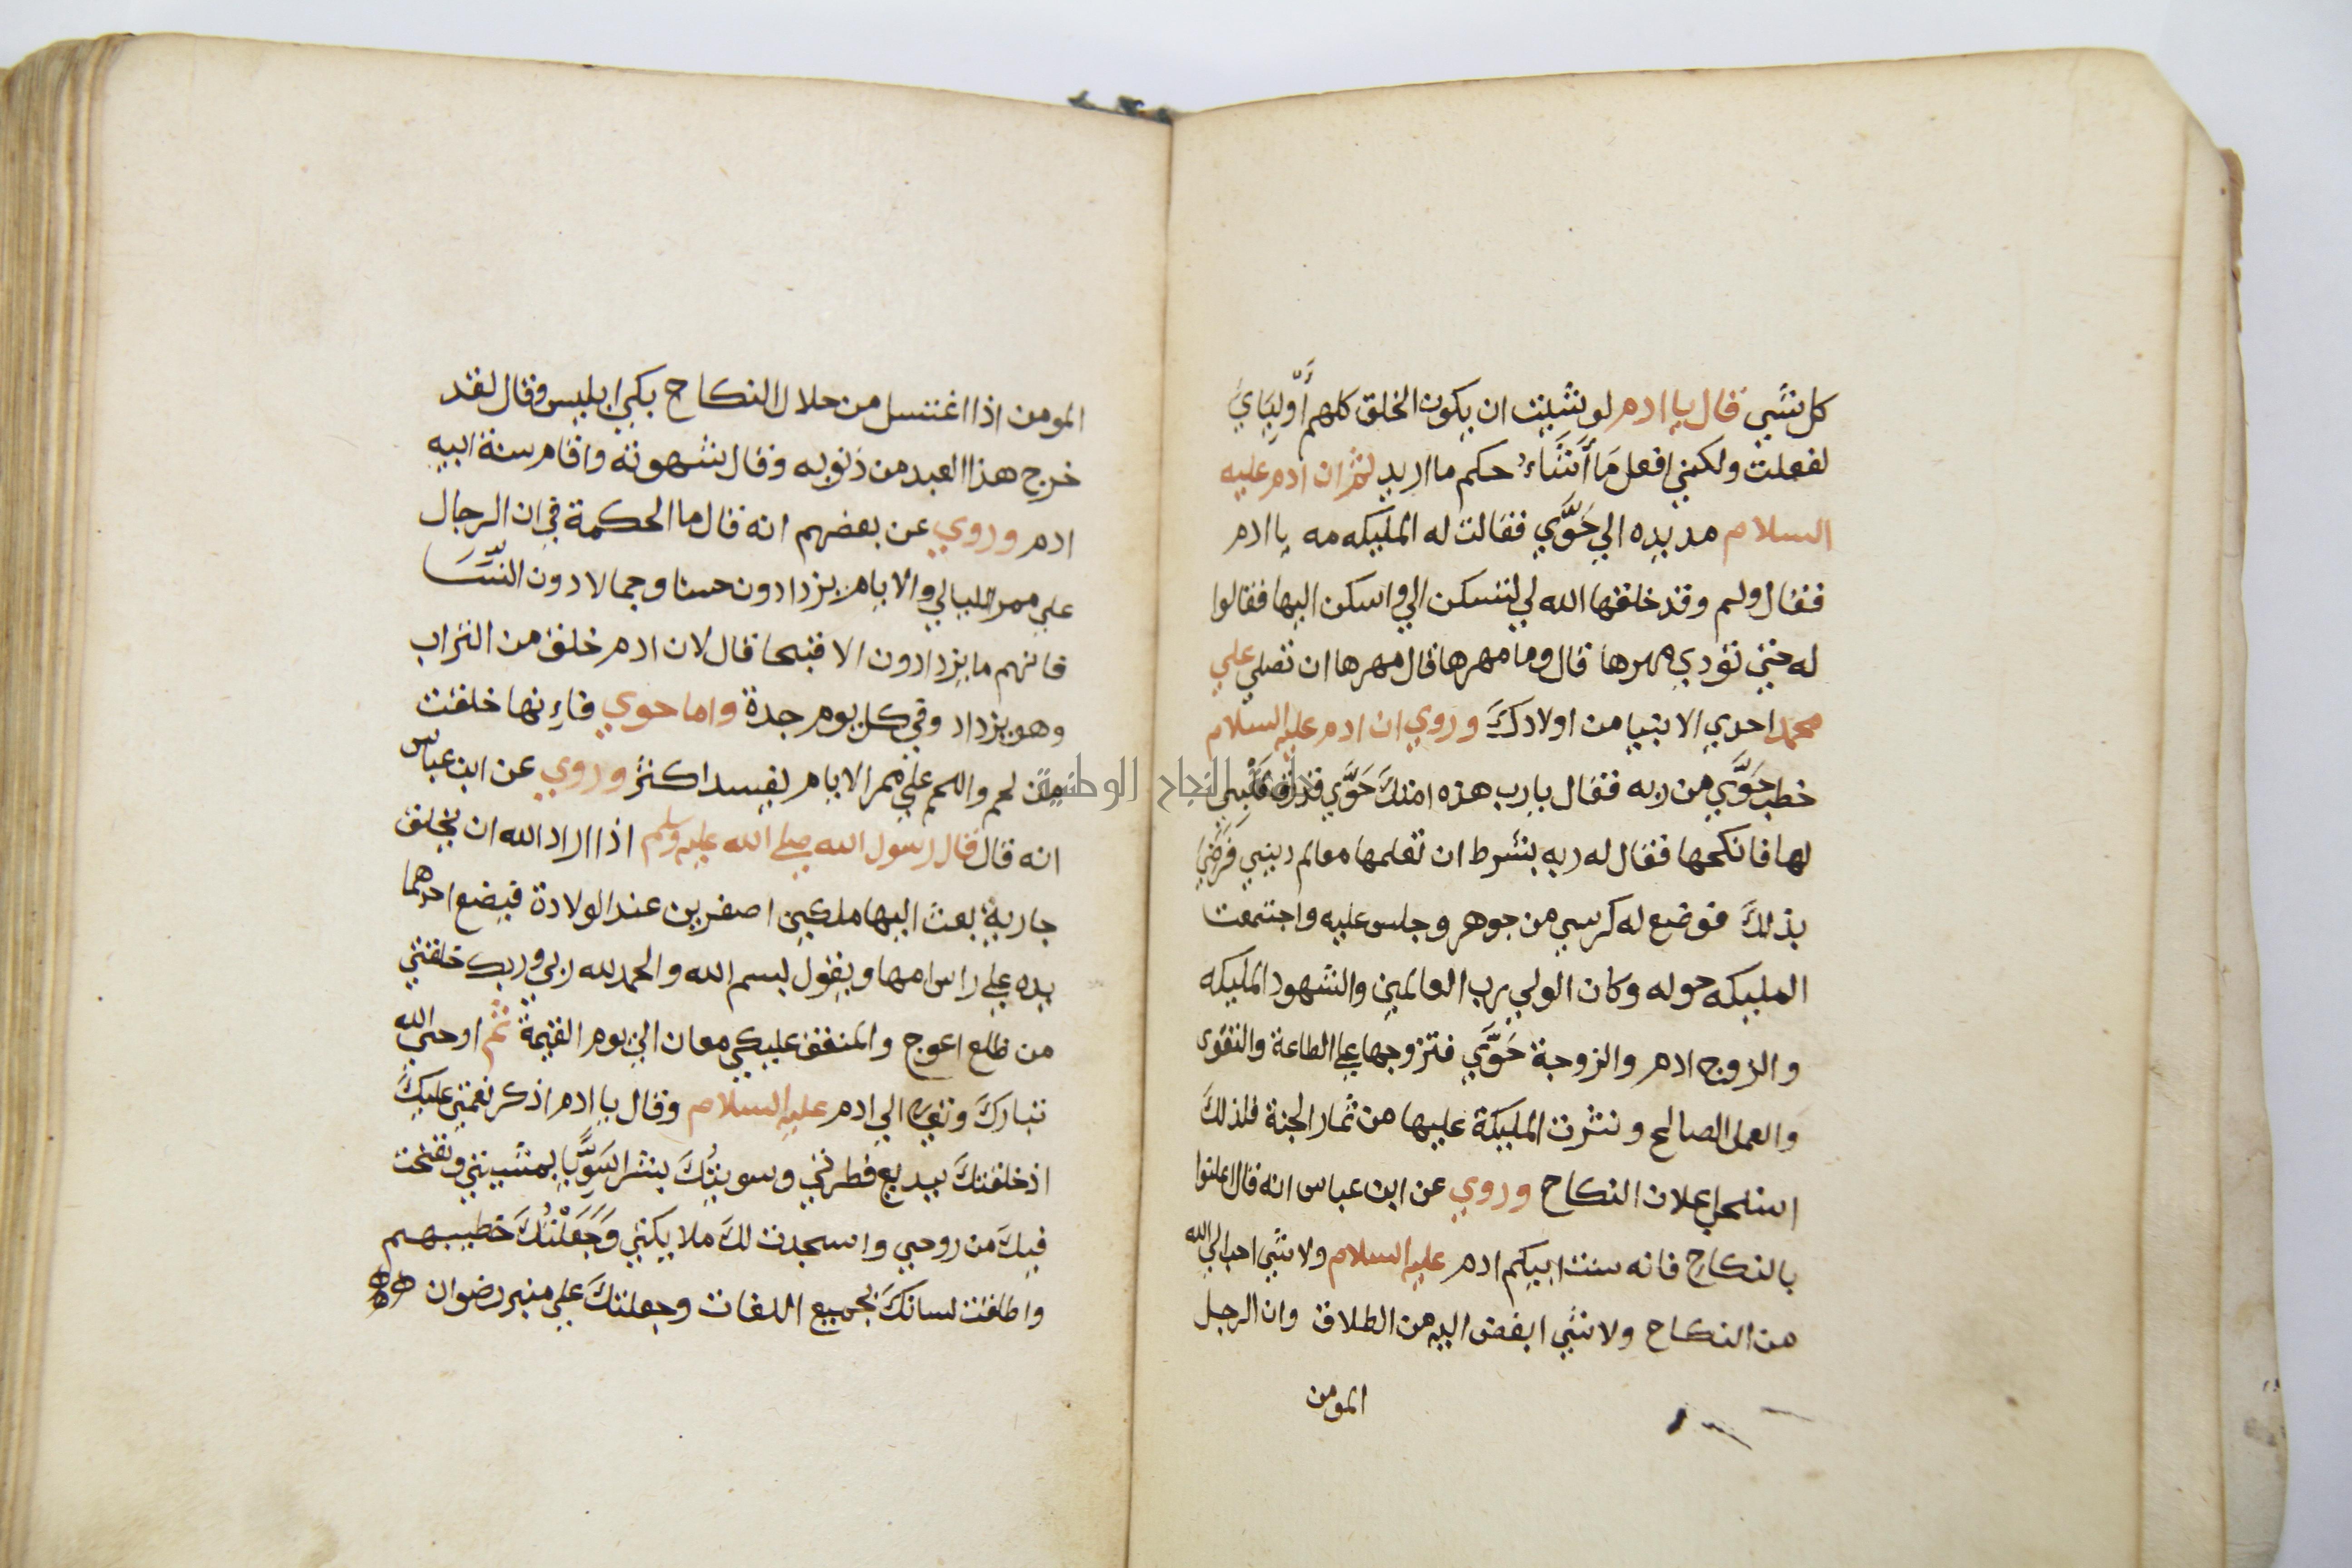 كل شي قال يا ادم لو شيت ان يكون الخلق كلهم أَوّلِيَايَ
لفعلت ولكنني افعل مَا أَشَاءُ حكم ما اريد ثم ان ادم عليه
السلام مد يده الي حَوَّي فقالت له المليكه مه يا ادم
فقال ولم وقد خلقها الله لي لتسكن الي واسكن اليها فقالوا
له حتي تؤدي مهرها قال وما مهرها قال مهرها ان تصلي علي
محمد احدي الانبيا من اولادكَ وروي ان ادم عليه السلام
خطب حَوَّي من ربه فقال يا رب هذه امتكَ حَوَّي قَلْبِي
لها فانكحها فقال له ربه بشرط ان تعلمها معالم ديني فَرَضِيَ
بذلكَ فوضع له كرسي من جوهر وجلس عليه واجتمعت
المليكه حوله وكان الولي رب العالمين والشهود المليكه
والزوج ادم والزوجة حَوَّي فتزوجها علي الطاعة والتقوى
والعمل الصالح ونثرت المليكة عليها من ثمار الجنة فلذلكَ
استحل اعلان النكاح وروي عن ابن عباس انه قال اعلنوا
بالنكاح فانه سنت ابيكم ادم عليه السلام ولا شي احب الي الله
من النكاح ولا شي ابغض اليه من الطلاق وان الرجل
المومن
المومن اذا اغتسل من حلال النكاح بكي ابليس وقال لقد
خرج هذا العبد من ذنوبه وقال شهوته واقام سنة ابيه
ادم وروي عن بعضهم انه قال ما الحكمة في ان الرجال
علي ممر الليالي والايام يزدادون حسنا وجمالا دون النِّسَا
فانهم ما يزدادون الا قبحا قال لان ادم خلق من التراب
وهو يزداد وفي كل يوم جدة واما حوي فاءنها خلقت
من لحم واللحم علي ممر الايام يفسد اكثر وروي عن ابن عباس
انه قال قال رسول الله صلي الله عليه وسلم اذا اراد الله ان يخلق
جارية بعث اليها ملكين اصفرين عند الولادة فيضع احدهما
يده علي راس امها ويقول بسم الله والحمد لله ربي وربك خلقتي
من ظلع اعوج والمنفق عليكي معان الي يوم القيمة ثم اوحي الله
تباركَ وتعالى الي ادم عليه السلام وقال يا ادم اذكر نعمتي عليكَ
اذ خلقتكَ ببديع فطرتي وسويتُكَ بشرا سَوِيًّا بمشييتي ونفخت
فيكَ من روحي واسجدت لكَ ملايكتي وَجَعَلْتُكَ خطيبهم
واطلقت لسانكَ بجميع اللغات وجعلتكَ علي منبر رضوان
جامعة النجاح الوطنية